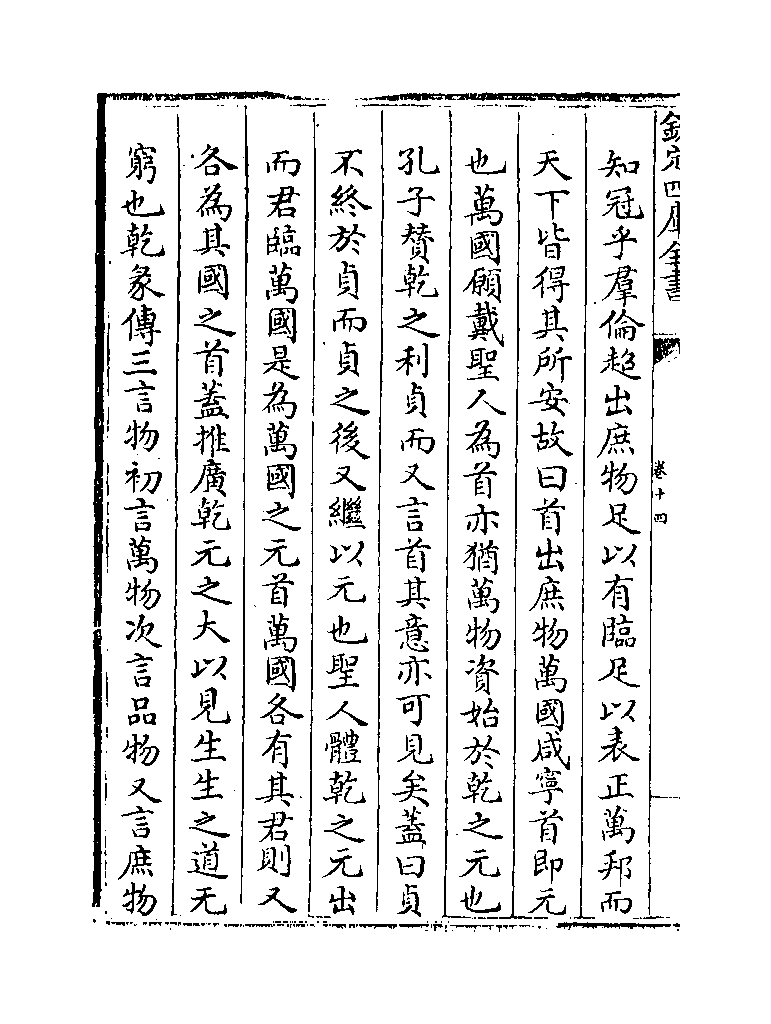 欽定四庫全書
卷十四
知冠乎羣倫超出庶物足以有臨足以表正萬邦而
天下皆得其所安故曰首出庶物萬國咸寧首即元
也萬國願戴聖人為首亦猶萬物資始於乾之元也
孔子贊乾之利貞而又言首其意亦可見矣蓋曰貞
不終於貞而貞之後又繼以元也聖人體乾之元出
而君臨萬國是為萬國之元首萬國各有其君則又
各為其國之首蓋推廣乾元之大以見生生之道无
窮也乾彖傳三言物初言萬物次言品物又言庶物